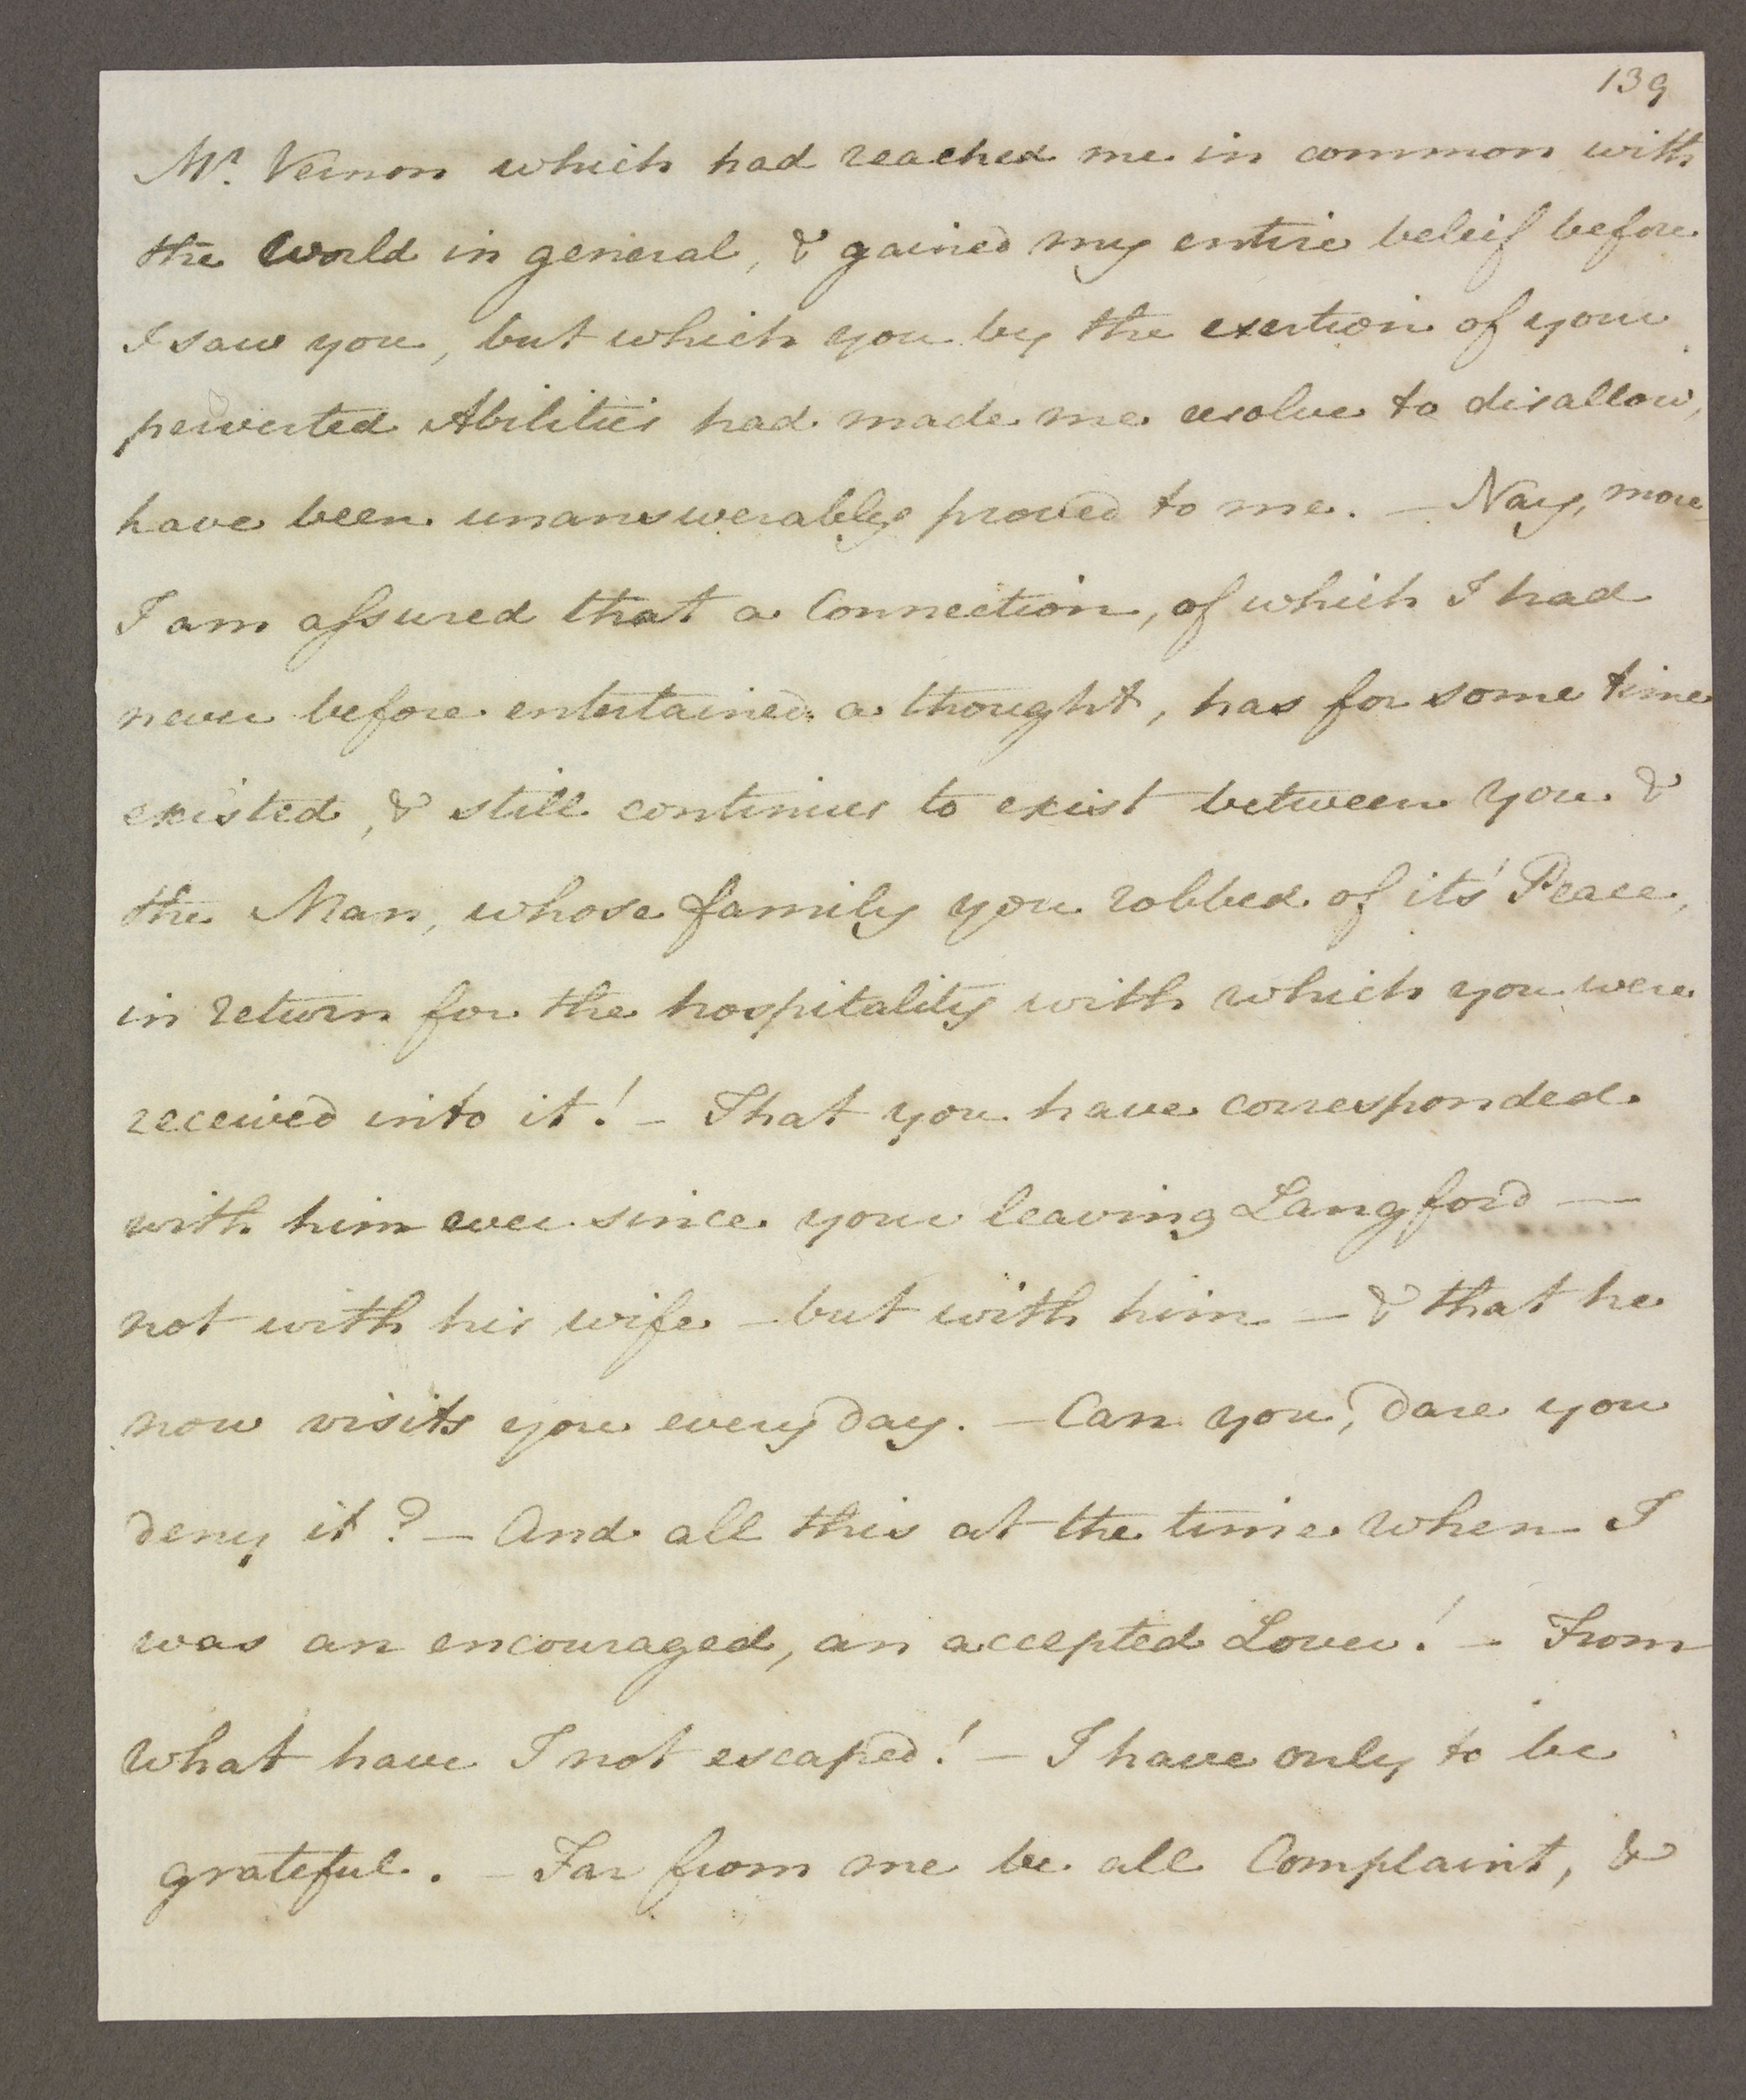 139
Mr. Vernon which had reached me in common with
the World in general, & gained my entire beleif before
I saw you, but which you by the exertion of your
perverted Abilities had made me resolve to disallow,
have been unanswerably proved to me. — Nay, more
I am assured that a Connection, of which I had
never before entertained a thought, has for some time
existed, & still continues to exist between you &
the Man, whose family you robbed of it's Peace,
in return for the hospitality with which you were
received into it! — That you have corresponded
with him ever since your leaving Langford —
not with his wife — but with him — & that he
now visits you every day. — Can you, dare you
deny it? — And all this at the time when I
was an encouraged, an accepted Lover! — From
what have I not escaped! — I have only to be
grateful. — Far from me be all Complaint, &